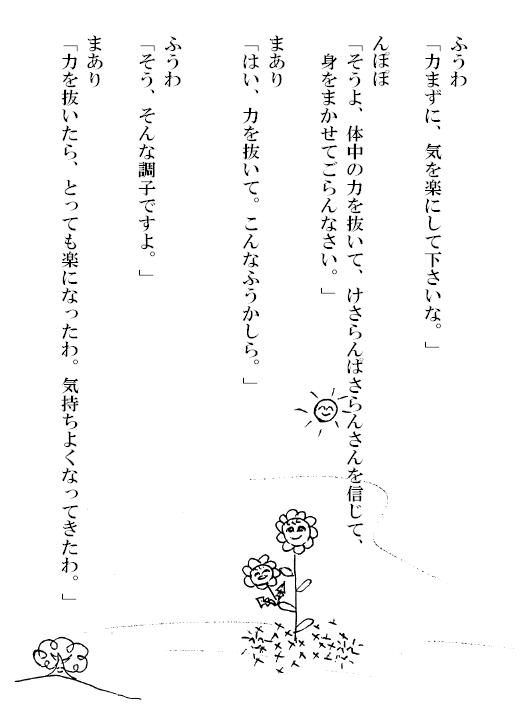 ふうわ
「力まずに、気を楽にして下さいな。」
んぽぽ
「そうよ、体中の力を抜いて、けさらんぱさらんさんを信じて、
身をまかせてごらんなさい。」
まあり
「はい、力を抜いて。こんなふうかしら。」
ふうわ
「そう、そんな調子ですよ。」
まあり
「力を抜いたら、とっても楽になったわ。気持ちよくなってきたわ。」